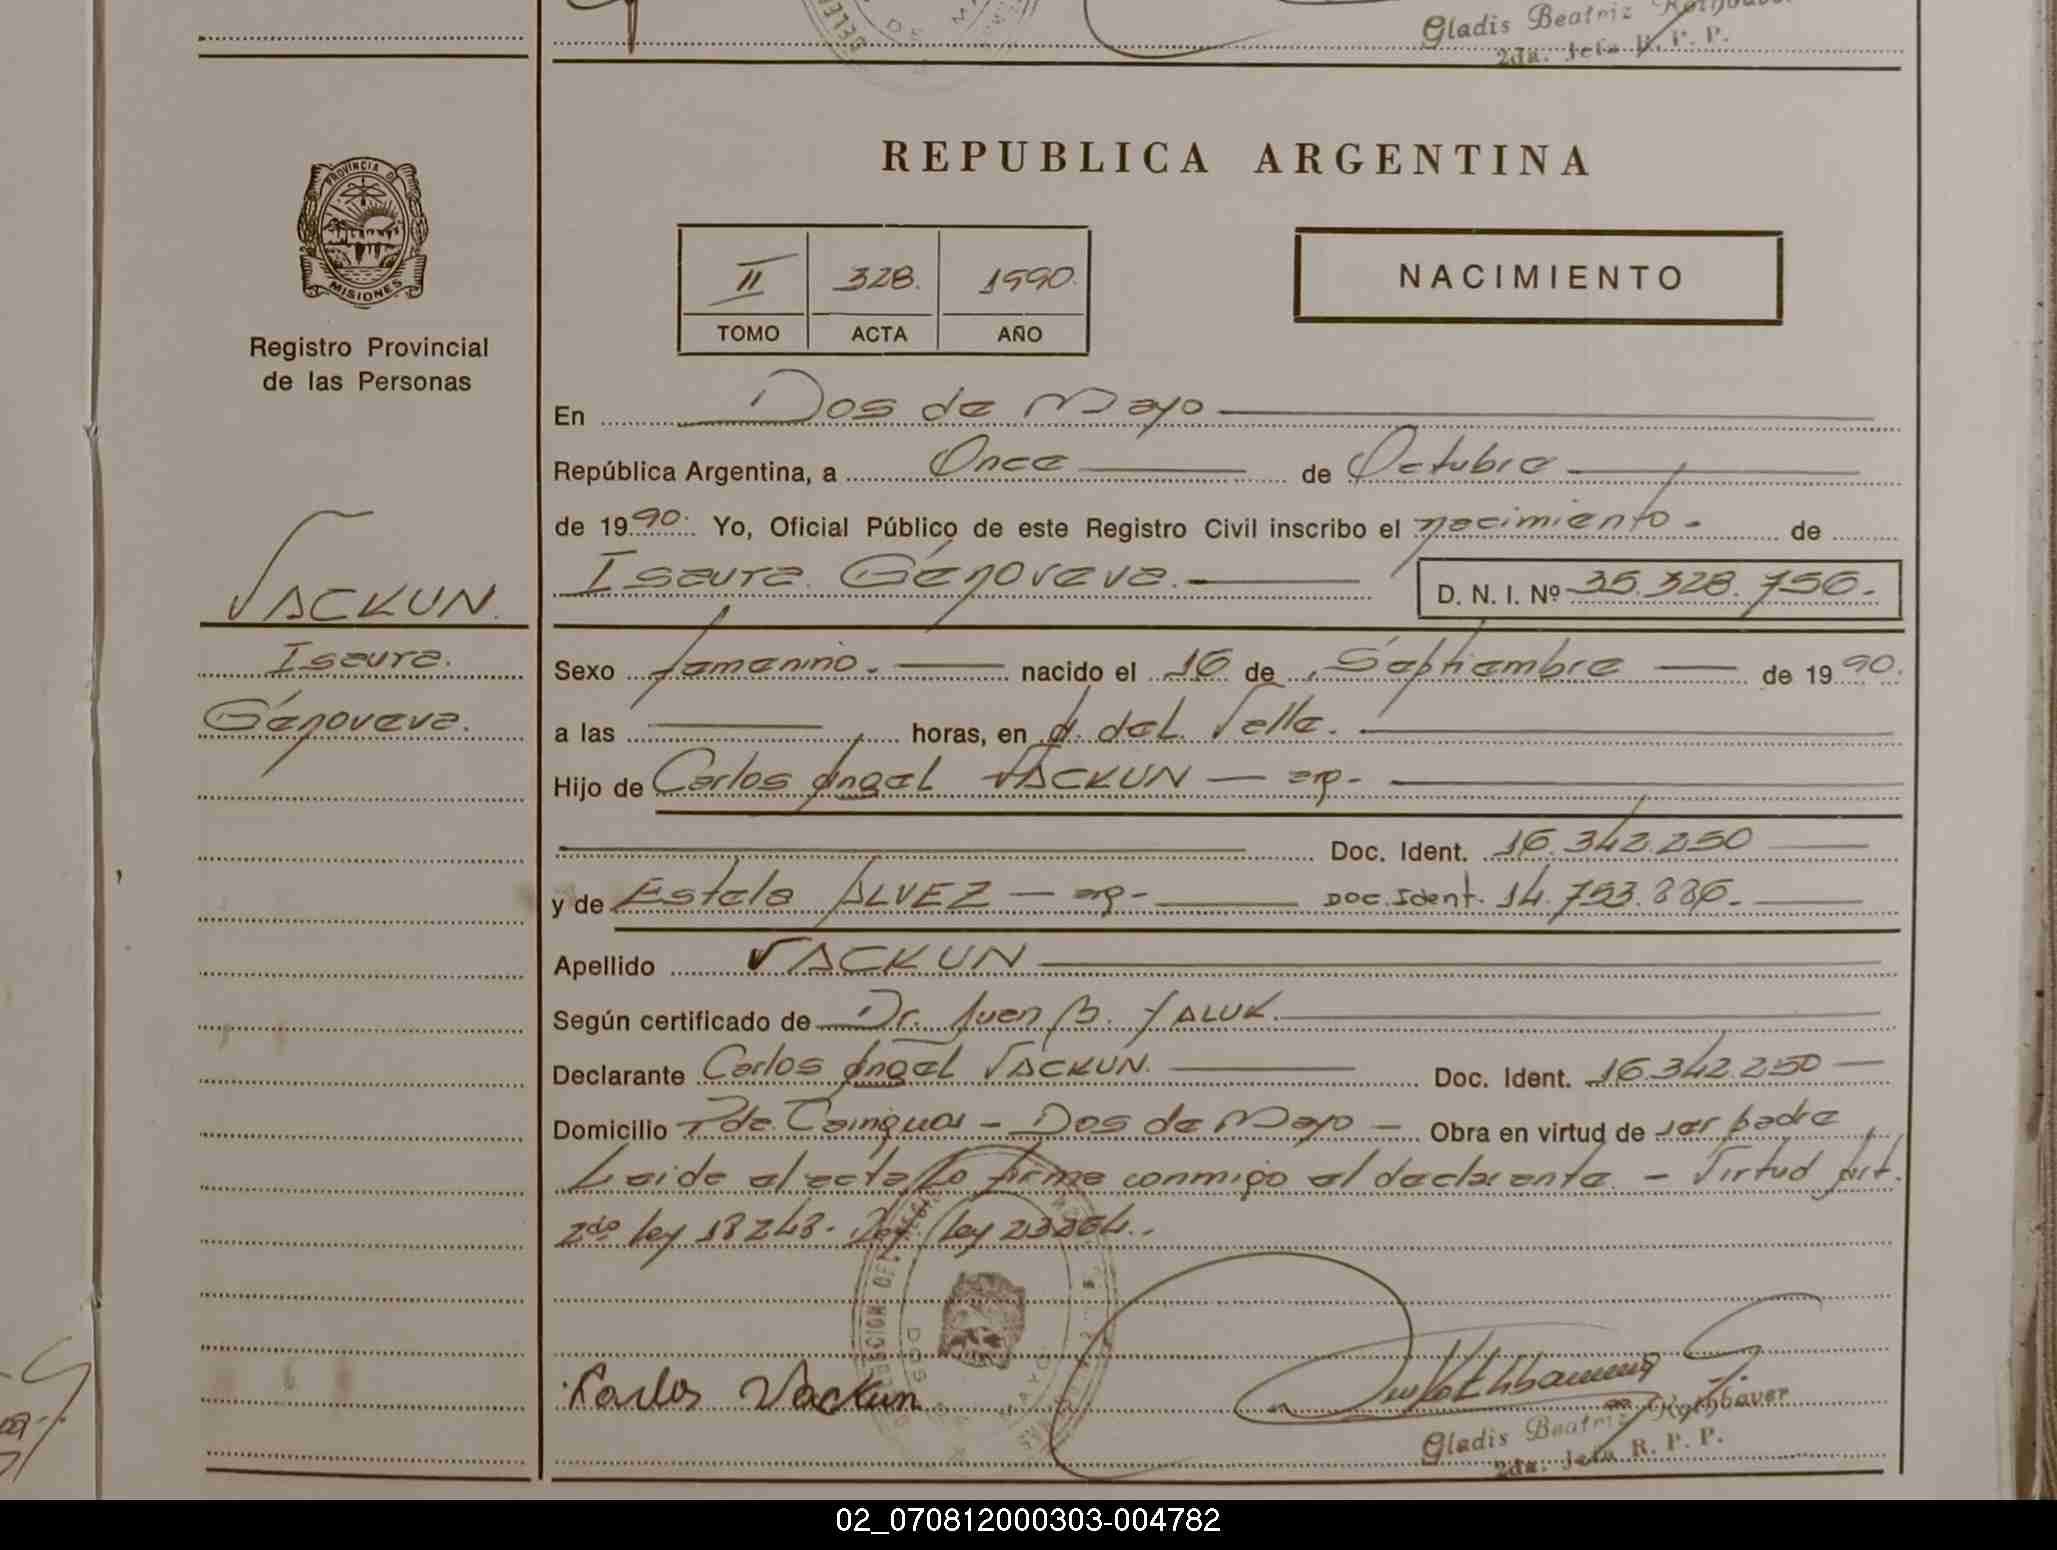 Gladis Beatriz Rothbauer
2da. Jefa R. P. P.
PROVINCIA D
MISIONES
Registro Provincial
de las Personas
VACKUN.
Isaura.
Génoveva.
REPUBLICA ARGENTINA
II 328. 1990.
TOMO ACTA AÑO
NACIMIENTO
En Dos de Mayo
República Argentina, a Once de Octubre
de 1990. Yo, Oficial Público de este Registro Civil inscribo el nacimiento. de
Isaura Génoveva. D. N. I. Nº 35.328.756.-
Sexo femenino. nacido el 16 de Septiembre de 1990.
a las horas, en A. del Valle.
Hijo de Carlos Angel VACKUN - arg-
Doc. Ident. 16.342.250
y de Estela ALVEZ - arg- Doc. Ident. 14.753.886.-
Apellido VACKUN
Según certificado de Dr. Juan B. YALUK.
Declarante Carlos Angel VACKUN. Doc. Ident. 16.342.250
Domicilio Pde. Cainguas - Dos de Mayo - Obra en virtud de ser padre
Leida el acta la firma conmigo el declarante. - Virtud Art.
2do ley 18248. ley 23264.-
Carlos Vackun
Gladis Beatriz Rothbauer
2da. Jefa R. P. P.
02_070812000303-004782